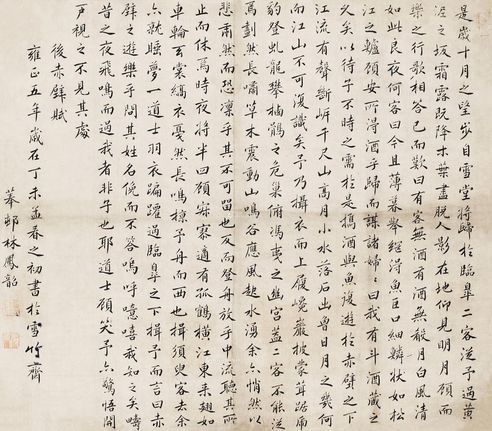 是歲十月之望步自雪堂將歸於臨皋二客從予過黃
泥之坂霜露既降木葉盡脫人影在地仰見明月顧而
樂之行歌相答已而歎曰有客無酒有酒無殽月白風清
如此良夜何客曰今且薄暮舉網得魚巨口細鱗狀如松
江之鱸顧安所得酒乎歸而謀諸婦婦曰我有斗酒藏之
久矣以待子不時之需於是攜酒與魚復遊於赤壁之下
江流有聲斷岸千尺山高月小水落石出曾日月之幾何
而江山不可復識矣予乃攝衣而上履巉巖披蒙茸踞虎
豹登虬龍攀棲鶻之危巢俯馮夷之幽宮蓋二客不能從
焉劃然長嘯草木震動山鳴谷應風起水湧余亦悄然以
悲肅然而恐凜乎其不可留也反而登舟放乎中流聽其所
止而休焉時夜將半四顧寂寥適有孤鶴橫江東來翅如
車輪玄裳縞衣戛然長鳴掠予舟而西也須臾客去余
亦就睡夢一道士羽衣蹁躚過臨皋之下揖予而言曰赤
壁之遊樂乎問其姓名俛而不答嗚呼噫嘻我知之矣疇
昔之夜飛鳴而過我者非子也耶道士顧笑予亦驚悟開
戶視之不見其處
後赤壁賦
雍正五年歲在丁未孟春之初書於雪竹齋
邨林鳳韶